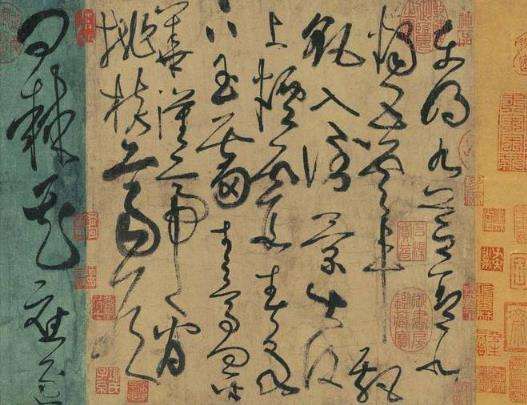 東明九芝蓋北
燭五雲車飄
颻入倒景出沒
上煙霞春泉
下玉霤青鳥向金
華漢帝看
桃核齊侯
問棘花應逐